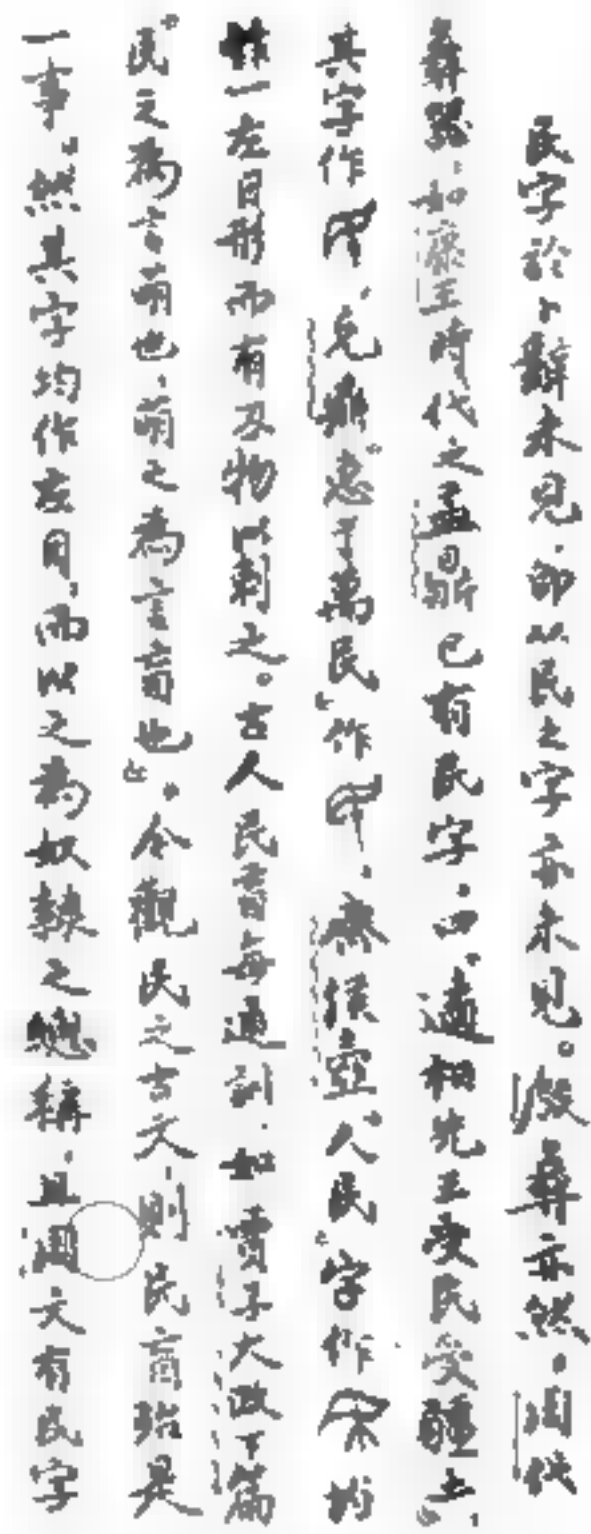 民字於卜辭未見，即从民之字亦未見。殷彝亦然。周代
彝器，如康王時代之盂鼎已有民字，曰、遹相先王受民受疆土，
其字作，克鼎“惠于萬民”作，齊侯壺“人民”字作均
作一左目形而有刃物以刺之。古人民盲每通訓，如賈子大政下篇
“民之為言萌也，萌之為言盲也”。今觀民之古文，則民盲殆是
一事。然其字均作左目，而以之為奴隸之總稱，且周文有民字